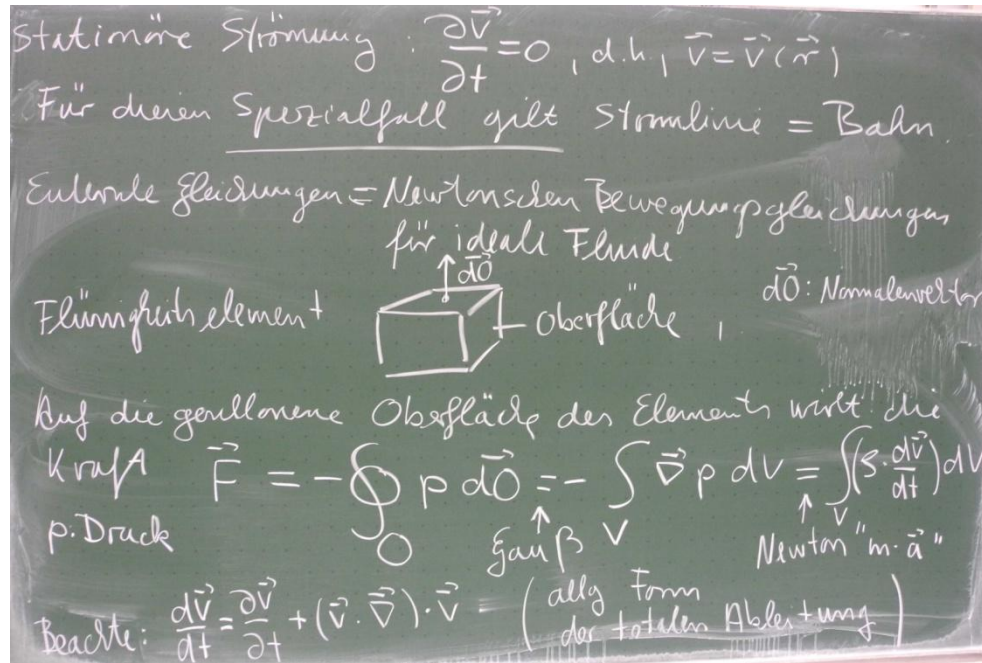 Stationäre Strömung : ∂v⃗/∂t = 0 , d.h. , v⃗ = v⃗(r⃗)
Für diesen Spezialfall gilt Stromlinie = Bahn
Eulersche Gleichungen = Newtonschen Bewegungsgleichungen
für ideale Fluide
dO⃗
Flüssigkeitselement
Oberfläche ,
dO⃗ : Normalenvektor
Auf die geschlossene Oberfläche des Elements wirkt die
Kraft F⃗ = - ∮_O p dO⃗ = - ∫_V ∇⃗ p dV = ∫_V (ρ · dv⃗/dt) dV
p: Druck
Gauß
Newton "m · a⃗"
Beachte: dv⃗/dt = ∂v⃗/∂t + (v⃗ · ∇⃗) · v⃗ (allg Form
der totalen Ableitung)